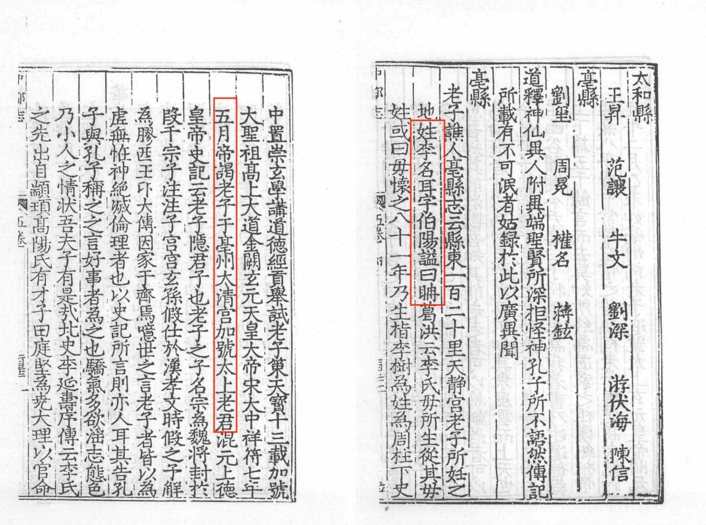 太和縣
王昇 范讓 牛文 劉深 游伏海 陳信
亳縣
劉璽 周晃 權名 蔣鉉
道釋神仙異人附異端聖賢所深拒怪神孔子所不語然傳記
所載有不可泯者姑録於此以廣異聞
亳縣
老子譙人亳縣志云縣東一百二十里天静宫老子所姓之
地姓李名耳字伯陽謚曰聃葛洪云李氏毋所生從其毋
姓或曰毋懷之八十一年乃生指李樹為姓為周柱下史
中置崇玄學講道德經貢舉試老子策天寶十三載加號
大聖祖高上大道金闕玄元天皇大帝宋大中祥符七年
五月帝謁老子于亳州太清宫加號太上老君混元上德
皇帝史記云老子隱君子也老子之子名宗為魏將封於
段干宗子注注子宫宫玄孫假仕於漢孝文時假之子解
為膠西王卬太傅因家于齊焉噫世之言老子者皆以為
虚無恠神絶滅倫理者也以史記所言則亦人耳其告孔
子與孔子稱之之言好事者為之也驕氣多欲淫志態色
乃小人之情狀吾夫子有是哉北史李延壽序傳云李氏
之先出自顓頊高陽氏有才子曰庭堅為堯大理以官命